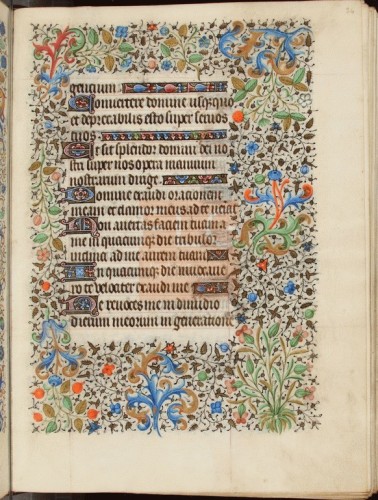 gencium
Conuertere domine usquequo
et deprecabilis esto super seruos
tuos
Et sit splendor domini dei no
stri super nos opera manuum
nostrarum dirige
Domine exaudi oracionem
meam et clamor meus ad te veniat
Non auertas faciem tuam a
me in quacumq; die tribulor
inclina ad me aurem tuam
In quacumq; die inuocaue
ro te velociter exaudi me
Ne reuoces me in dimidio
dierum meorum in generatione